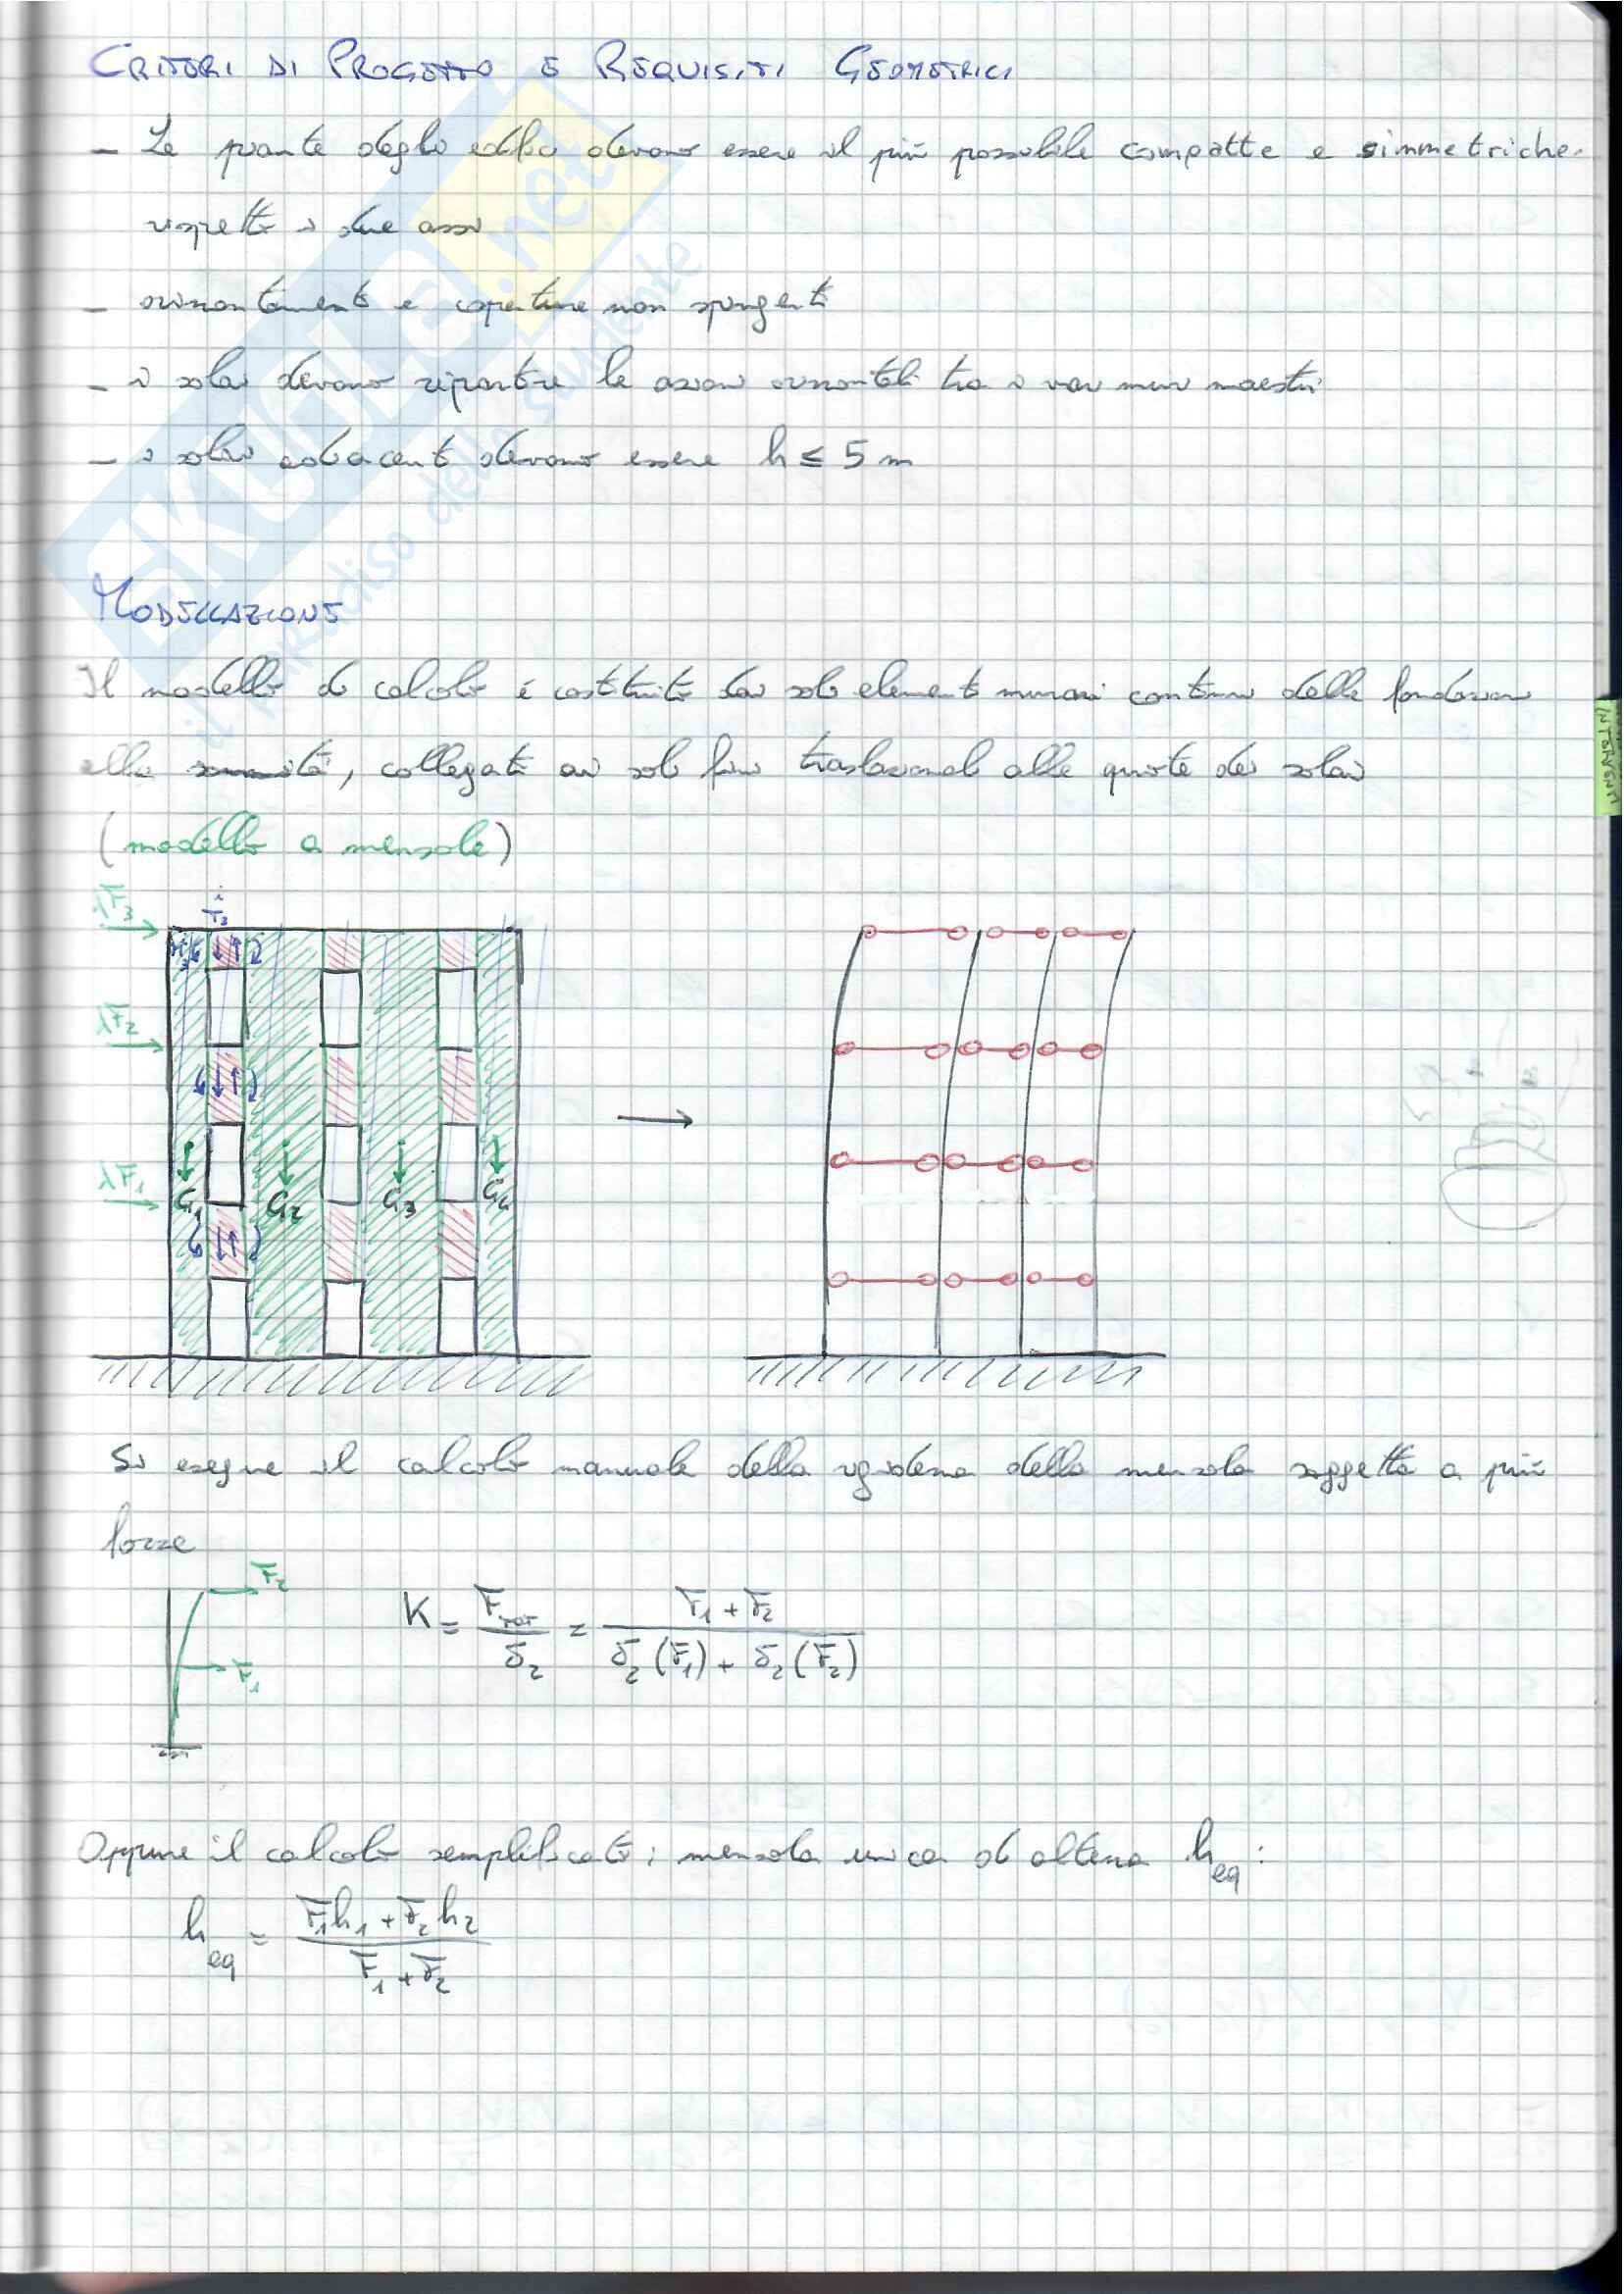 CRITERI DI PROGETTO E REQUISITI GEOMETRICI
- Le piante degli edifici devono essere il più possibile compatte e simmetriche
rispetto i due assi
- orizzontamenti e coperture non spingenti
- i solai devono ripartire le azioni orizzontali tra i vari muri maestri
- i solai adiacenti devono essere h ≤ 5 m
MODELLAZIONE
Il modello di calcolo è costituito dai soli elementi murari continui dalle fondazioni
alla sommità, collegati ai soli fini traslazionali alle quote dei solai
(modello a mensole)
λF3
T3^i
λF2
λF1
G1 G2 G3 G4
Si esegue il calcolo manuale della rigidezza della mensola soggetta a più
forze
F2
F1
K = F_TOT / δ2 = (F1 + F2) / (δ2(F1) + δ2(F2))
Oppure il calcolo semplificato: mensola unica di altezza h_eq :
h_eq = (F1h1 + F2h2) / (F1 + F2)
INTERVENTI
SKUOLA.net
il paradiso dello studente